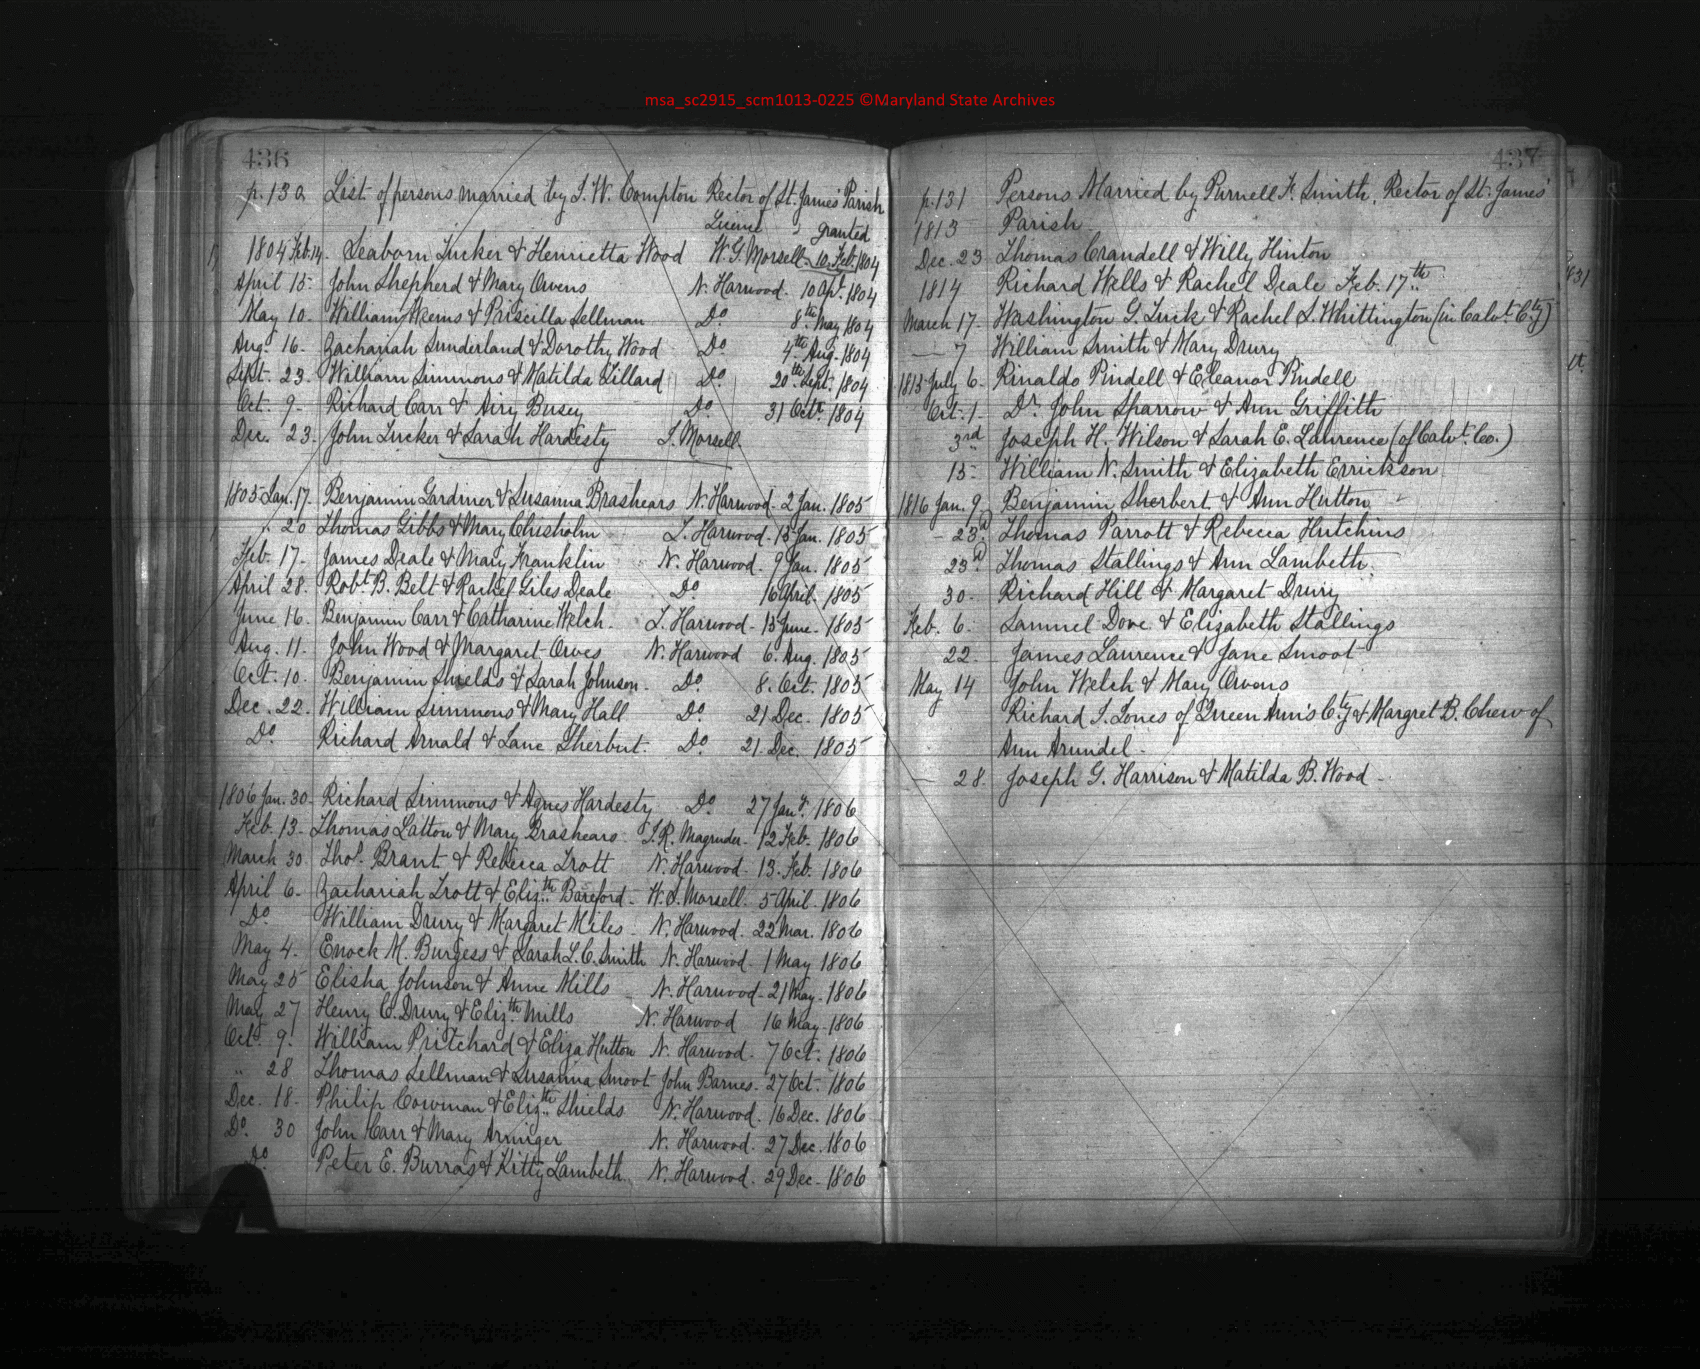 msa_sc2915_scm1013-0225 ©Maryland State Archives
436
p. 130 List of persons married by J. W. Compton Rector of St. James' Parish
License " granted
1804 Feb. 14. Seaborn Tucker & Henrietta Wood W. G. Morsell 10. Feb. 1804
April 15. John Shepherd & Mary Owens N. Harwood. 10 Apl. 1804
May 10. William Weems & Priscilla Sellman Do. 8th May 1804
Aug. 16. Zachariah Sunderland & Dorothy Wood Do. 4th Aug. 1804
Sept. 23. William Simmons & Matilda Tillard Do. 20th Sept. 1804
Oct. 9. Richard Carr & Airy Busey Do. 31 Octr. 1804
Dec. 23. John Tucker & Sarah Hardesty J. Morsell
1805 Jan. 17. Benjamin Gardiner & Susanna Brashears N. Harwood. 2 Jan. 1805
" 20 Thomas Gibbs & Mary Chisholm T. Harwood. 15 Jan. 1805
Feb. 17. James Deale & Mary Franklin N. Harwood. 9 Jan. 1805
April 28. Robt. B. Belt & Rachel Giles Deale Do. 16 April. 1805
June 16. Benjamin Carr & Catharine Welch. T. Harwood. 15 June. 1805
Aug. 11. John Wood & Margaret Orves N. Harwood 6. Aug. 1805
Oct. 10. Benjamin Shields & Sarah Johnson. Do. 8. Oct. 1805
Dec. 22. William Simmons & Mary Hall Do. 21 Dec. 1805
Do. Richard Arnald & Jane Sherbut. Do. 21. Dec. 1805
1806 Jan. 30. Richard Simmons & Agnes Hardesty Do. 27 Jany. 1806
Feb. 13. Thomas Latton & Mary Brashears J. R. Magruder. 12 Feb. 1806
March 30. Thos. Brant & Rebecca Trott N. Harwood. 13. Feb. 1806
April 6. Zachariah Trott & Elizth. Bareford. W. S. Morsell. 5 April. 1806
Do. William Drury & Margaret Miles. N. Harwood. 22 Mar. 1806
May 4. Enock M. Burgess & Sarah L. C. Smith N. Harwood. 1 May 1806
May 25 Elisha Johnson & Anne Mills N. Harwood. 21 May. 1806
May 27 Henry C. Drury & Elizth. Mills N. Harwood 16 May. 1806
Oct. 9. William Pritchard & Eliza Hutton N. Harwood. 7 Oct. 1806
" 28 Thomas Sellman & Susanna Smoot John Barnes. 27 Oct. 1806
Dec. 18. Philip Cowman & Elizth. Shields N. Harwood. 16 Dec. 1806
Do. 30 John Carr & Mary Armiger N. Harwood. 27 Dec. 1806
Do. Peter E. Burras & Kitty Lambeth. N. Harwood. 29 Dec. 1806
437
p. 131 Persons Married by Purnell F. Smith, Rector of St. James'
1813 Parish
Dec. 23 Thomas Crandell & Willy Hinton
1814 Richard Wells & Rachel Deale Feb. 17th.
March 17. Washington G. Tuck & Rachel S. Whittington (in Calvt. Cty)
— 7 William Smith & Mary Drury
1815 July 6. Rinaldo Pindell & Eleanor Pindell
Oct. 1. Dr. John Sparrow & Ann Griffith
3rd Joseph H. Wilson & Sarah E. Laurence (of Calvt. Co.)
15. William N. Smith & Elizabeth Errickson
1816 Jan. 9. Benjamin Sherbert & Ann Hutton
- 23d. Thomas Parrott & Rebecca Hutchins
23d. Thomas Stallings & Ann Lambeth.
30. Richard Hill & Margaret Drury
Feb. 6. Samuel Dove & Elizabeth Stallings
22. James Laurence & Jane Smoot
May 14 John Welch & Mary Owens
Richard I. Jones of Queen Ann's Cty & Margret B. Chew of
Ann Arundel.
— 28. Joseph G. Harrison & Matilda B. Wood.